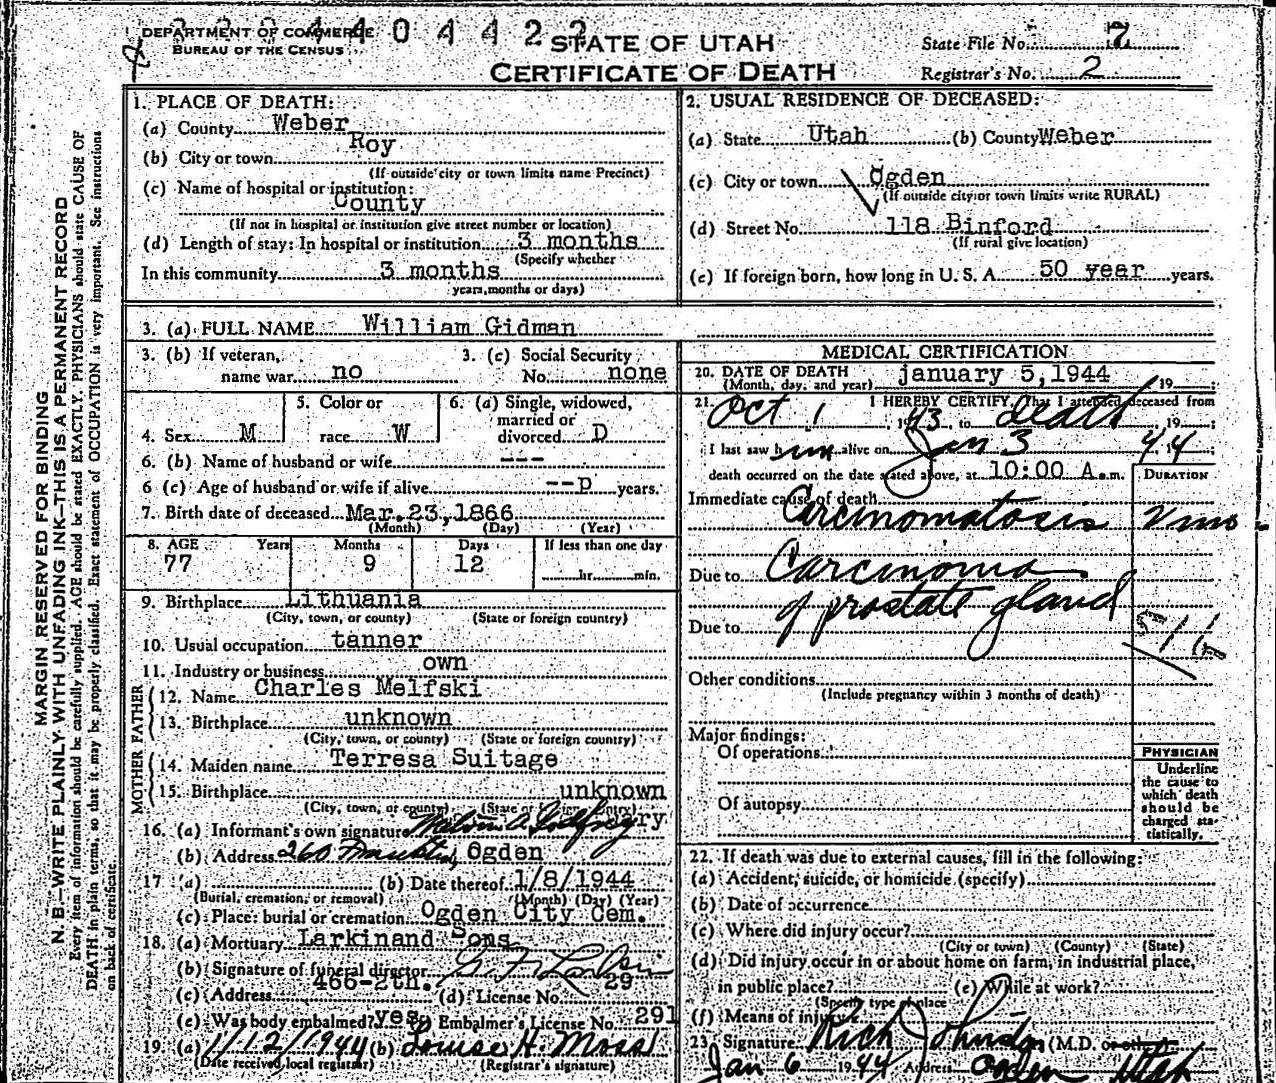 DEPARTMENT OF COMMERCE
BUREAU OF THE CENSUS
STATE OF UTAH
CERTIFICATE OF DEATH
State File No. 7
Registrar's No. 2
MARGIN RESERVED FOR BINDING
N. B.—WRITE PLAINLY WITH UNFADING INK—THIS IS A PERMANENT RECORD
Every item of information should be carefully supplied. AGE should be stated EXACTLY. PHYSICIANS should state CAUSE OF
DEATH in plain terms, so that it may be properly classified. Exact statement of OCCUPATION is very important. See instructions
on back of certificate.
1. PLACE OF DEATH:
(a) County Weber
(b) City or town Roy
(If outside city or town limits name Precinct)
(c) Name of hospital or institution:
County
(If not in hospital or institution give street number or location)
(d) Length of stay: In hospital or institution 3 months
(Specify whether
In this community 3 months
years, months or days)
2. USUAL RESIDENCE OF DECEASED:
(a) State Utah (b) County Weber
(c) City or town Ogden
(If outside city or town limits write RURAL)
(d) Street No. 118 Binford
(If rural give location)
(e) If foreign born, how long in U. S. A. 50 year years.
3. (a) FULL NAME William Gidman
3. (b) If veteran, 3. (c) Social Security
name war no No. none
4. Sex M
5. Color or
race W
6. (a) Single, widowed,
married or
divorced D
6. (b) Name of husband or wife ---
6 (c) Age of husband or wife if alive --p years.
7. Birth date of deceased Mar.23,1866
(Month) (Day) (Year)
8. AGE Years Months Days If less than one day
77 9 12 hr. min.
9. Birthplace Lithuania
(City, town, or county) (State or foreign country)
10. Usual occupation tanner
11. Industry or business own
FATHER
12. Name Charles Melfski
13. Birthplace unknown
(City, town, or county) (State or foreign country)
MOTHER
14. Maiden name Terresa Suitage
15. Birthplace unknown
(City, town, or county) (State or foreign country)
16. (a) Informant's own signature
(b) Address 260 Franklin, Ogden
17 (a) (b) Date thereof 1/8/1944
(Burial, cremation, or removal) (Month) (Day) (Year)
(c) Place: burial or cremation Ogden City Cem.
18. (a) Mortuary Larkinand Sons
(b) Signature of funeral director
(c) Address 466-2th. (d) License No. 29
(e) Was body embalmed? yes Embalmer's License No. 291
19. (a) 1/12/1944 (b) Louise H. Moss
(Date received local registrar) (Registrar's signature)
MEDICAL CERTIFICATION
20. DATE OF DEATH
(Month, day, and year) january 5,1944 19
21. I HEREBY CERTIFY, That I attended deceased from
Oct 1 1943, to death 19
I last saw him alive on Jan 3 44
death occurred on the date stated above, at 10:00 A.m.
DURATION
Immediate cause of death
Carcinomatosis
Due to Carcinoma
of prostate gland
Due to
Other conditions
(Include pregnancy within 3 months of death)
Major findings:
Of operations
Of autopsy
PHYSICIAN
Underline
the cause to
which death
should be
charged sta-
tistically.
22. If death was due to external causes, fill in the following:
(a) Accident, suicide, or homicide (specify)
(b) Date of occurrence
(c) Where did injury occur?
(City or town) (County) (State)
(d) Did injury occur in or about home on farm, in industrial place,
in public place? (e) While at work?
(Specify type of place
(f) Means of injury
23. Signature Rich Johnston (M.D. or other)
Jan 6 1944 Address Ogden Utah